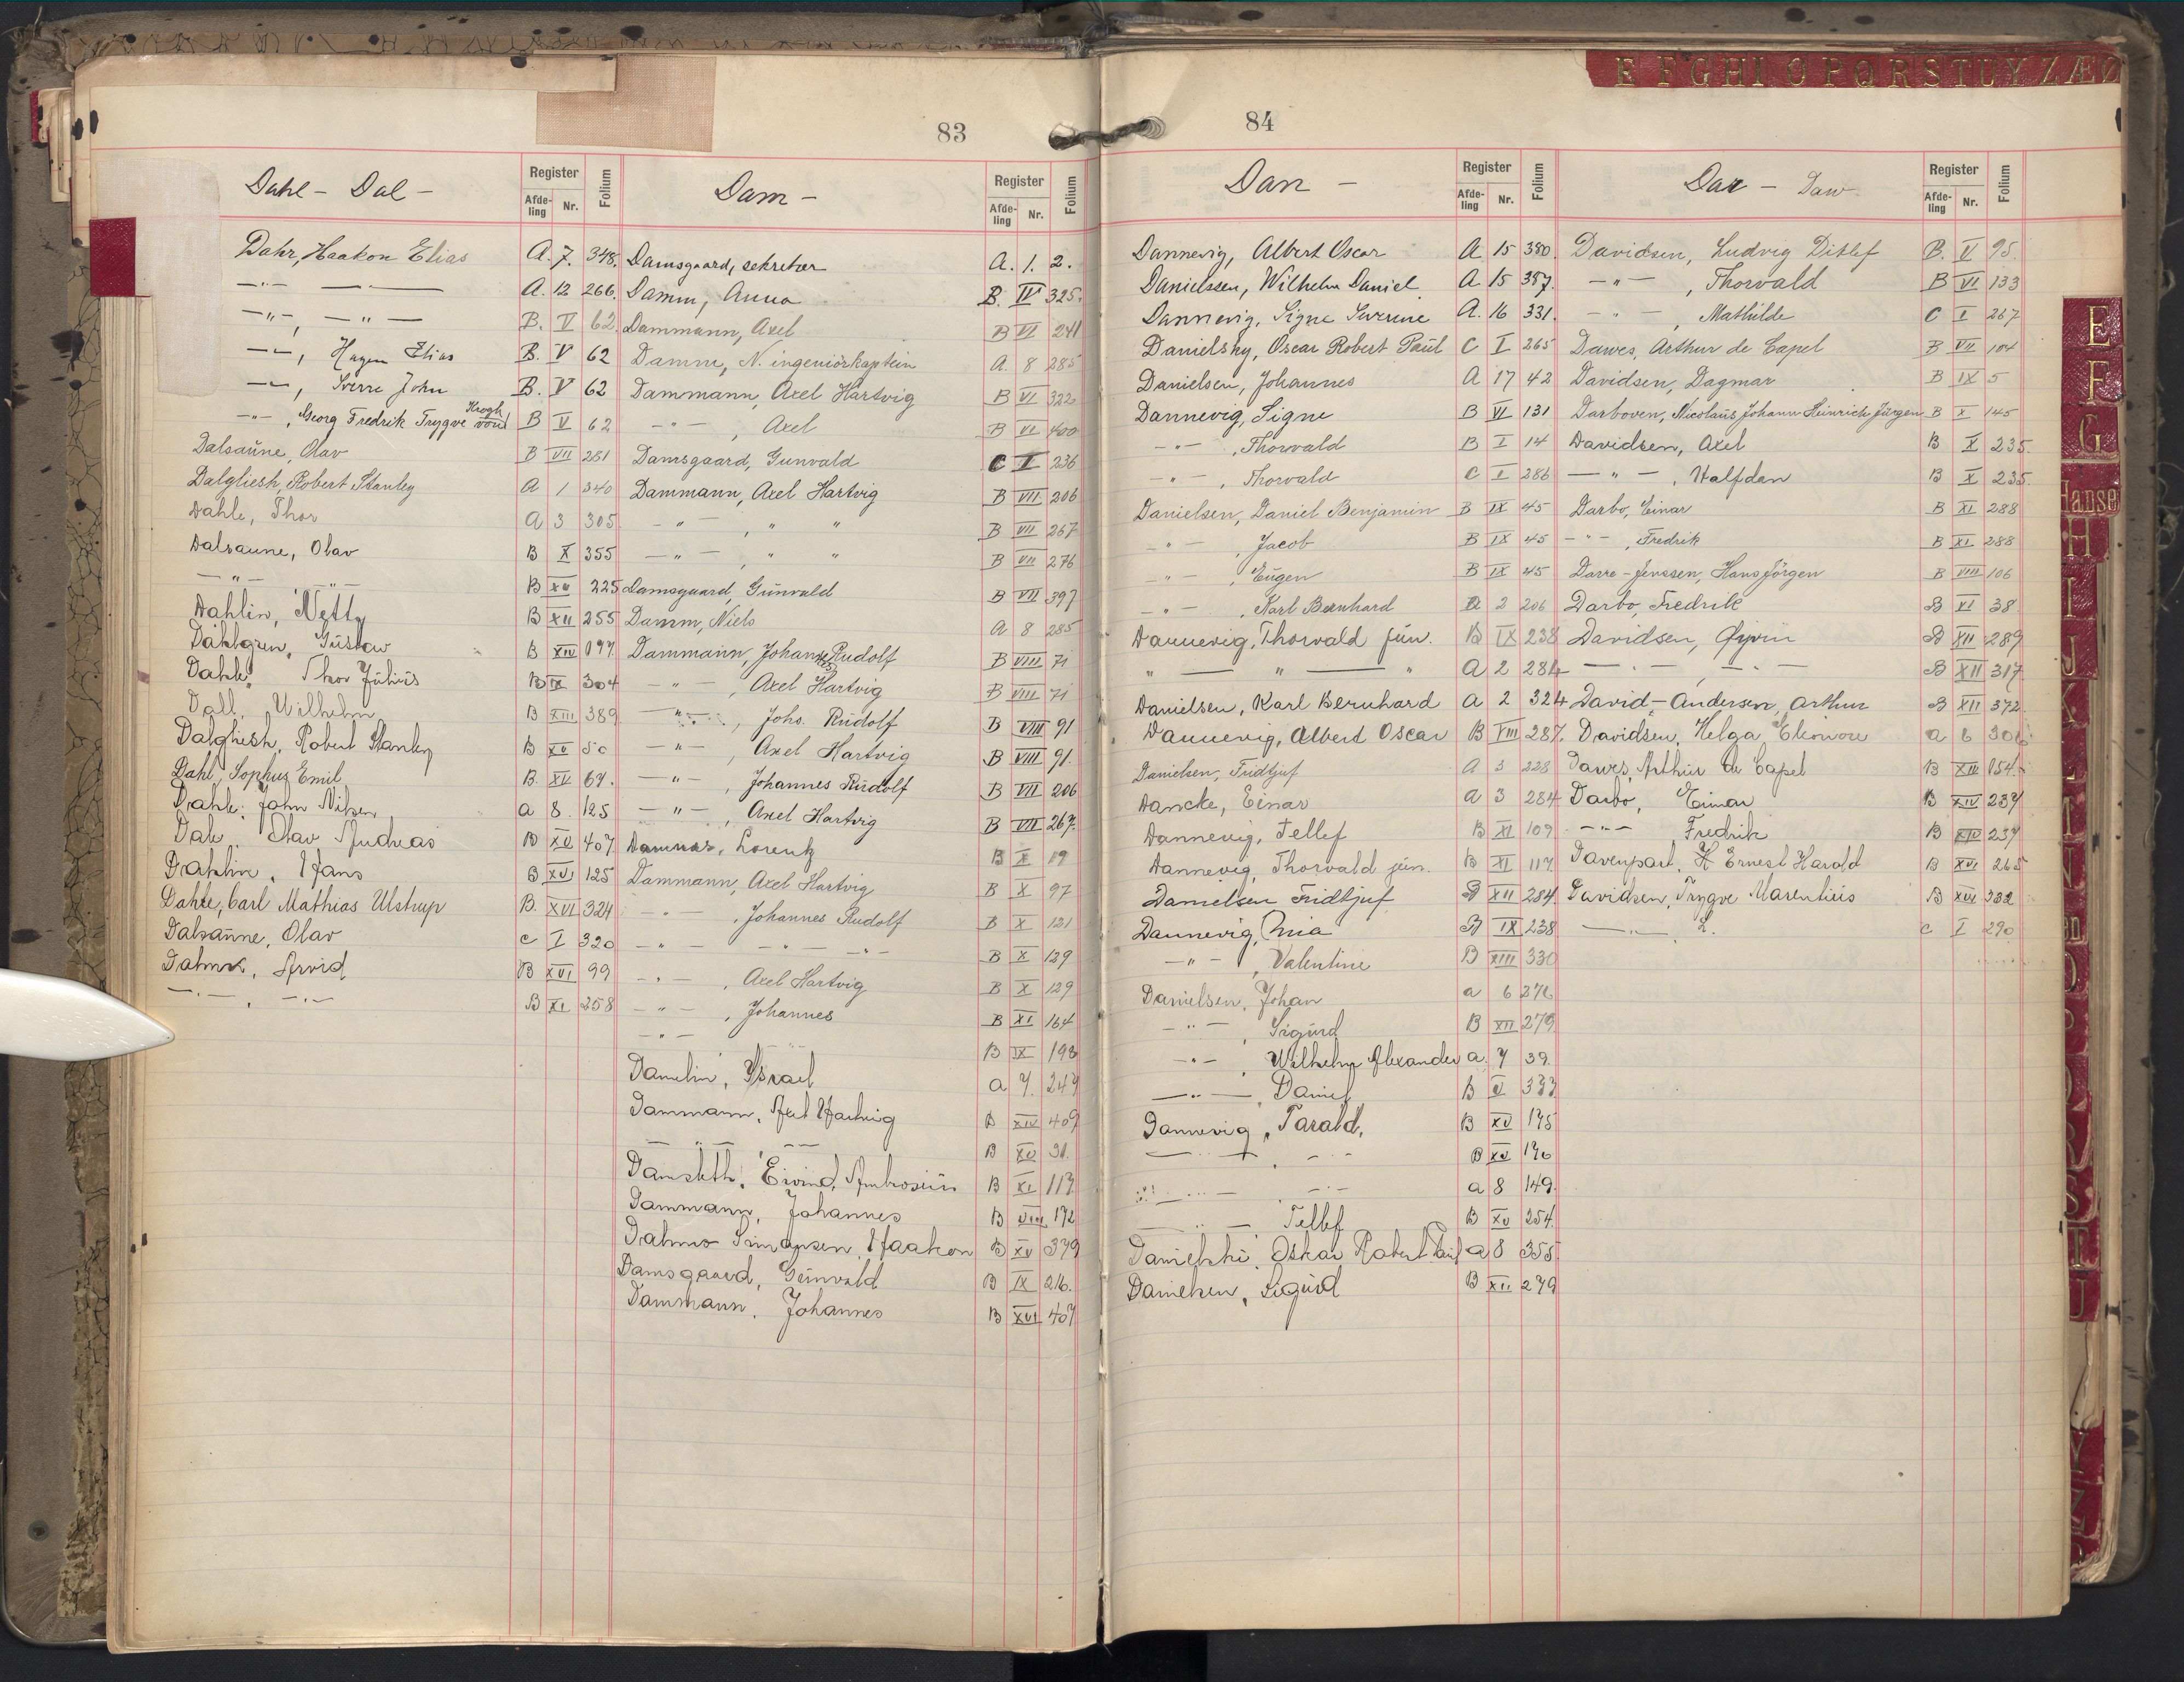 E F G H I O P Q R S T U Y Z Æ Ø
83
Dahl - Dal -
Register
Afde-ling Nr. Folium
Dahr, Haakon Elias A. 7. 348.
-"- -"- A. 12 266.
-"-, -"- B. V 62
-"-, Hagen Elias B. V 62
-"-, Sverre John B. V 62
-"-, Georg Fredrik Trygve Krogh B V 62
Dalsaune, Olav B VII 281
Dalgliesh, Robert Stanley A 1 340
Dahle, Thor A 3 305
Dalsaune, Olav B X 355
-"- -"- B XII 225
Dahlin, Netty B XII 255
Dahlgren, Gustav B XIV 097
Dahle, Thor Julius B IX 304
Dall, Wilhelm B XIII 389
Dalgliesh, Robert Stanley B XV 50
Dahl, Sophus Emil B. XV 67.
Dahle, John Nilsen a 8. 125
Dale, Olav Andreas B XV 407
Dahlin, Hans B XVI 125
Dahle, Carl Mathias Ulstrup B. XVI 324
Dalsaune, Olav C I 320
Dalmo, Arvid B XVI 99
-"-, -"- B XI 258
Dam -
Register
Afde-ling Nr. Folium
Damsgaard, sekretær A. 1. 2.
Damm, Anna B. IV 325.
Dammann, Axel B VI 241
Damm, N. ingeniörkaptein A. 8 285
Dammann, Axel Hartvig B VI 322
-"-, Axel B VI 400
Damsgaard, Gunvald C I 236
Dammann, Axel Hartvig B VII 206
-"-, " " B VII 267
-"-, " " B VII 276
Damsgaard, Gunvald B VII 397
Damm, Niels A 8 285
Dammann, Johann Rudolf B VIII 71
-"-, Axel Hartvig B VIII 71
-"-, Johs. Rudolf B VIII 91
-"-, Axel Hartvig B VIII 91.
-"-, Johannes Rudolf B VII 206
-"-, Axel Hartvig B VII 267.
Damnas, Lorentz B X 19
Dammann, Axel Hartvig B X 97
-"-, Johannes Rudolf B X 121
-"- -"- -"- B X 129
-"-, Axel Hartvig B X 129
-"-, Johannes B XI 164
-"- B IX 193
Damelin, Israel a 7. 247
Dammann, Axel Hartvig B XIV 409
-"- -"- B XV 31.
Damsleth, Eivind Ambrosius B XI 113
Dammann, Johannes B VIII 172
Dalmo Simonsen, Haakon B XV 379
Damsgaard, Gunvald B IX 216.
Dammann, Johannes B XVI 407
84
Dan -
Register
Afde-ling Nr. Folium
Dannevig, Albert Oscar A. 15 380.
Danielssen, Wilhelm Daniel A 15 387.
Dannevig, Signe Severine A. 16 331.
Danielsky, Oscar Robert Paul C I 265
Danielsen, Johannes A 17 42
Dannevig, Signe B VI 131
-"-, Thorvald B I 14
-"-, Thorvald C I 286
Danielsen, Daniel Benjamin B IX 45
-"-, Jacob B IX 45
-"-, Eugen B IX 45
-"-, Karl Bernhard a 2 206
Dannevig, Thorvald jun. B IX 238
" " " A 2 284
Danielsen, Karl Bernhard A 2 324
Dannevig, Albert Oscar B VIII 287.
Danielsen, Fridtjuf A 3 228
Dancke, Einar a 3 284
Dannevig, Tellef B XI 109
Dannevig, Thorvald jun. B XI 117
Danielsen Fridtjuf B XII 284
Dannevig, Mia B IX 238
-"-, Valentine B XIII 330
Danielsen, Johan a 6 276
-"-, Sigurd B XII 279
-"-, Wilhelm Alexander a. 7 39.
-"-, Daniel B V 333
Dannevig, Tarald, B XV 175
-"-, -"- B XV 176
-"-, -"- a 8 149.
-"- Tellef B XV 254.
Danielski, Oskar Robert Paul a 8 355
Danielsen, Sigurd B XII 279
Dar - Daw
Register
Afde-ling Nr. Folium
Davidsen, Ludvig Ditlef B. V 95.
-"-, Thorvald B VI 133
-"-, Mathilde C I 267
Dawes, Arthur de Capel B VII 104
Davidsen, Dagmar B IX 5
Darboven, Nicolaus Johann Heinrich Jürgen B X 145
Davidsen, Axel B X 235.
-"-, Halfdan B X 235.
Darbo, Einar B XI 288
-"-, Fredrik B XI 288
Darre-Jenssen, Hans Jörgen B VIII 106
Darbo, Fredrik B XI 38.
Davidsen, Øyvin B XII 289
-"- -"- B XII 317.
David-Andersen, Arthur B XII 372.
Davidsen, Helga Eleonore a 6 306
Dawes, Arthur de Capel B XIII 154.
Darbo, Einar B XIV 237
-"- Fredrik B XIV 237
Davenport, H Ernest Harold B XVI 265
Davidsen, Trygve Marentius B XVI 332
-"- L. C I 290
E
F
G
Hansen
H
I
J
K